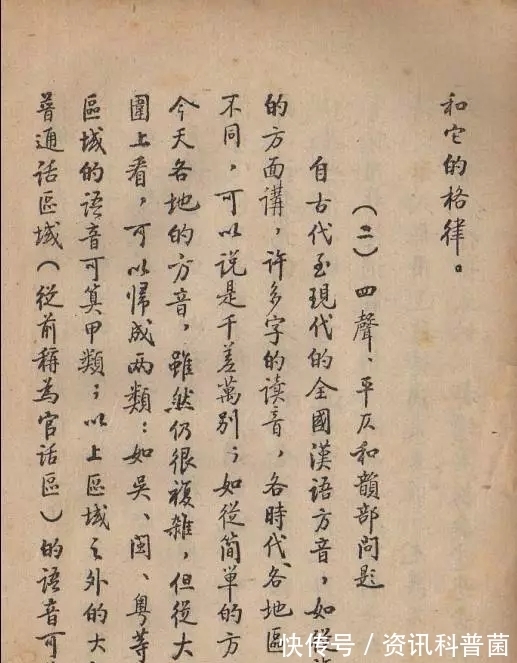 和它的格律。
(二)四聲、平仄和韻部問題
自古代至現代的全國漢語方音,如從
的方面講,許多字的讀音,各時代各地區
不同,可以說是千差萬別;如從簡單的方
今天各地的方音,雖然仍很複雜,但從大
圍上看,可以歸成兩類:如吳、閩、粵等
區域的語音可算甲類;以上區域之外的大
普通話區域(從前稱為官話區)的語音可
快传号/资讯科普菌